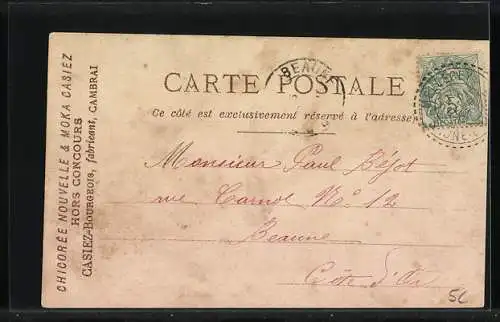 CHICORÉE NOUVELLE & MOKA CASIEZ
HORS CONCOURS
CASIEZ-BOURGEOIS, fabricant, CAMBRAI
BEAUNE
CARTE POSTALE
Ce côté est exclusivement réservé à l'adresse
Monsieur Paul Béjot
rue Carnot No 12
Beaune
Côte d'Or
5L